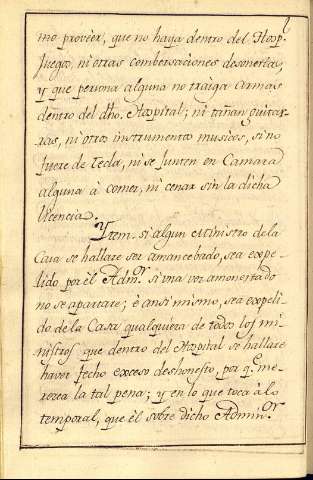 mo proveér, que no haya dentro del Hosp.
Juegos, ni otras comberzaciones desonestas,
y que persona alguna no traiga Armas
dentro del dho. Hospital; ni tañan guitar-
ras, ni otros instrumentos musicos, si no
fuere de tecla, ni se junten en Camara
alguna à comer, ni cenar sin la dicha
licencia.
Ytem. si algun Ministro de la
Casa se hallare ser amancebado, sea expe-
lido por èl Adm.or si una vez amonestado
no se apartare; è ansi mismo, sea expeli-
do de la Casa qualquiera de todos los mi-
nistros que dentro del Hospital se hallare
haver fecho exceso deshonesto, por q.e me-
rezca la tal pena; y en lo que toca à lo
temporal, que èl sobre dicho Admin.or